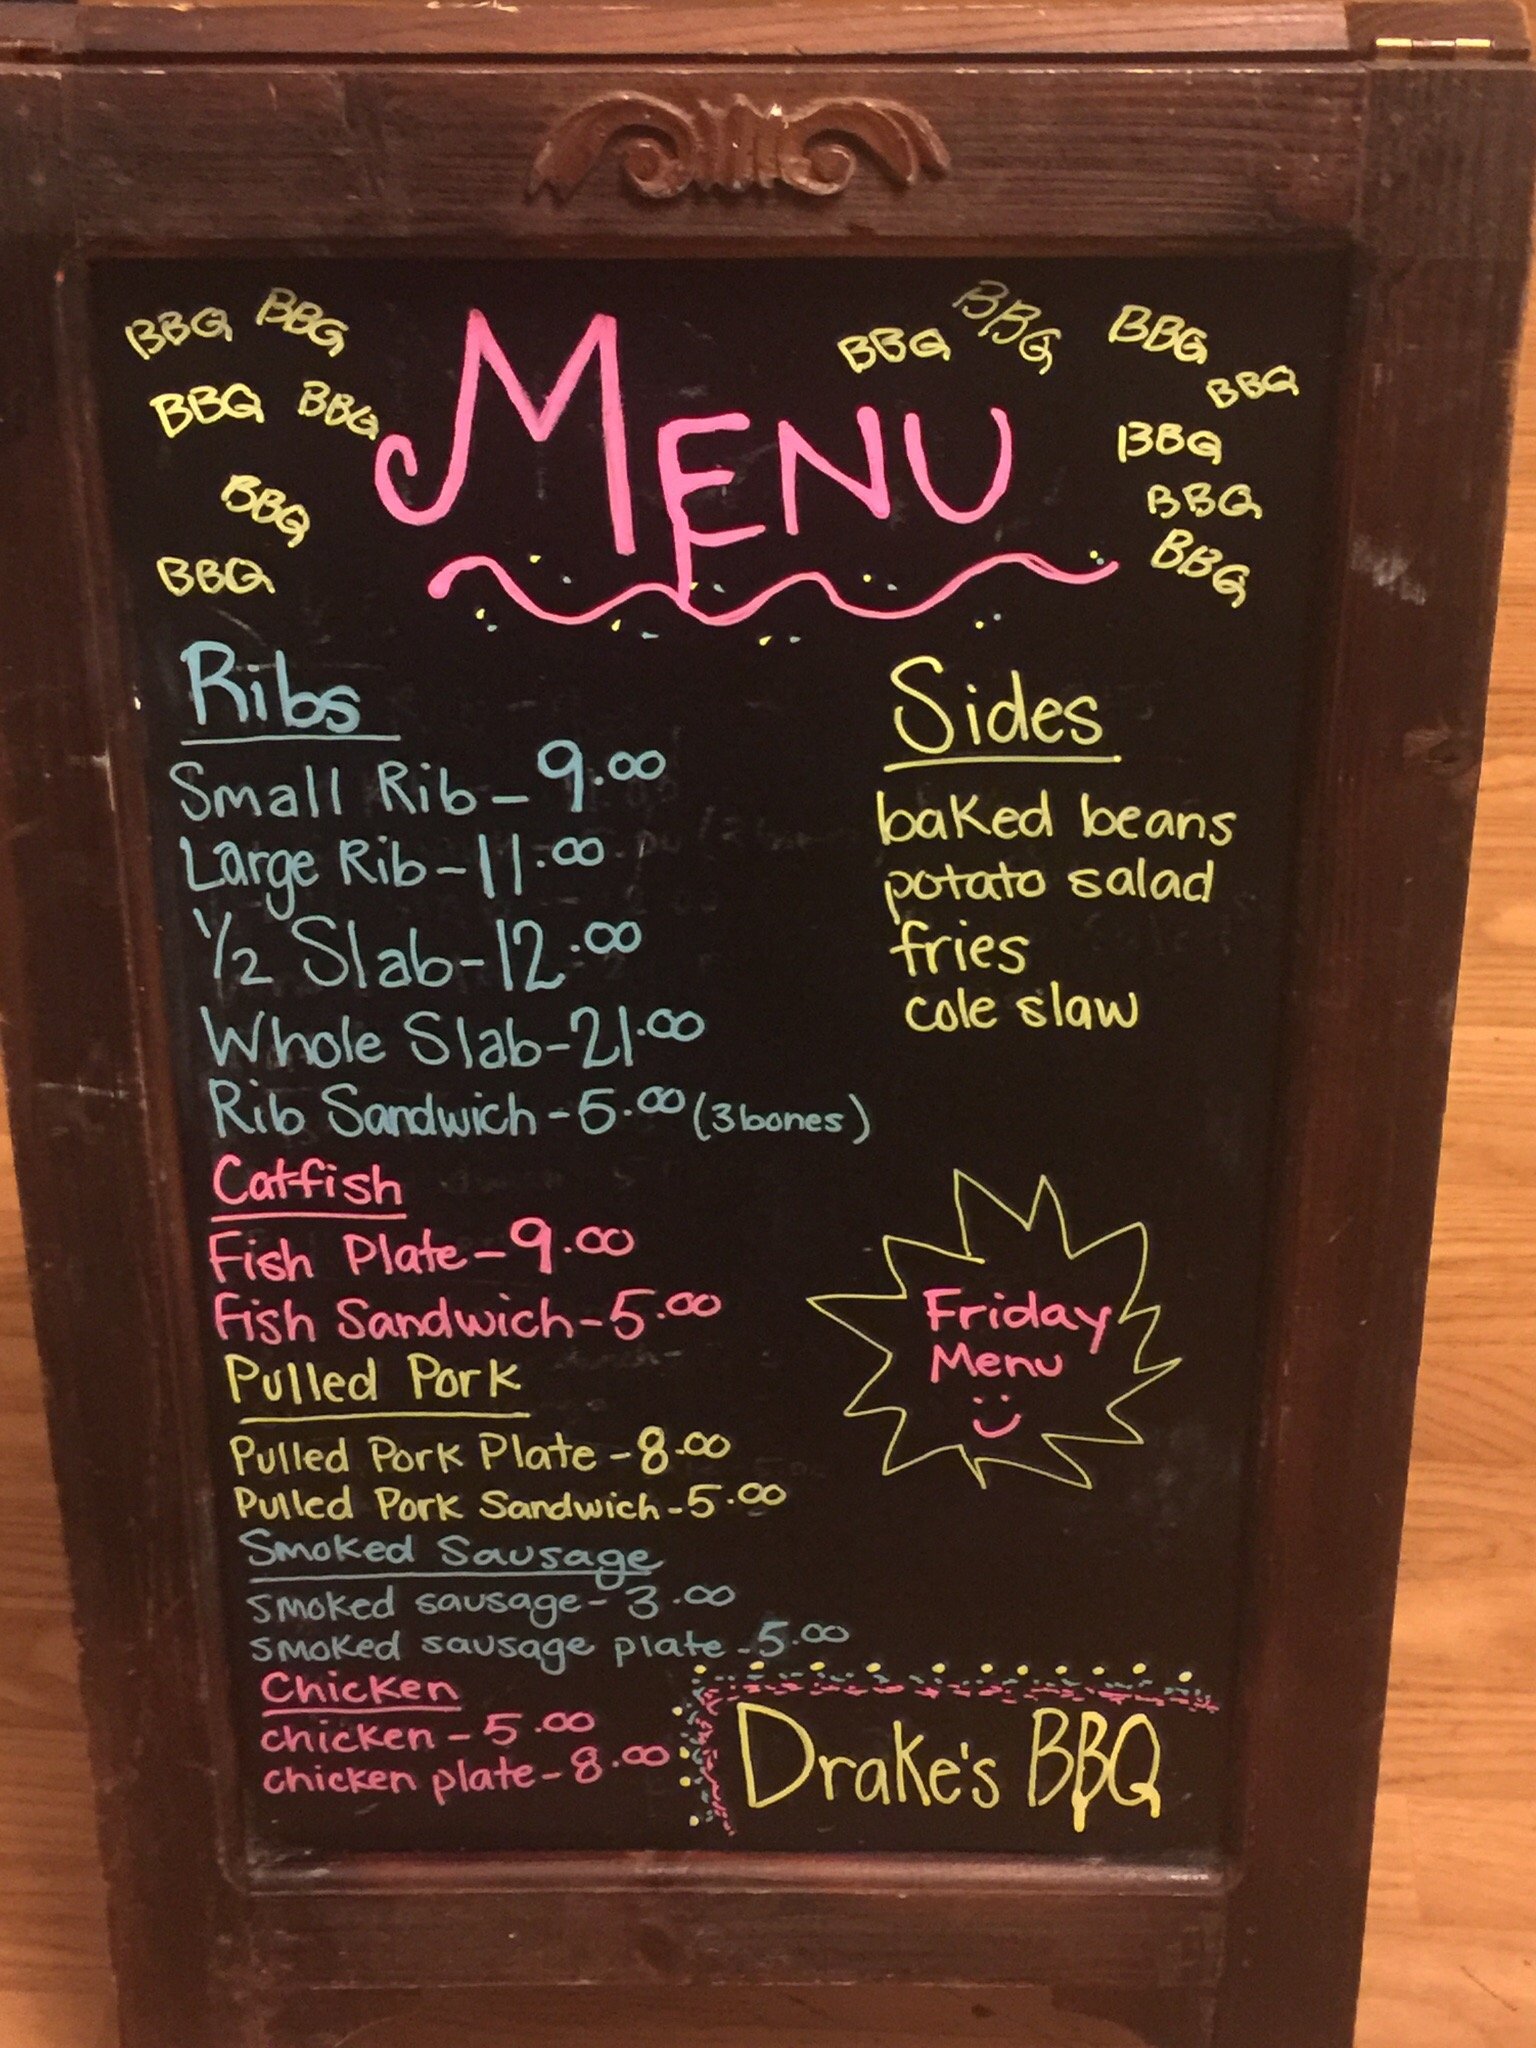 BBQ BBQ BBQ BBQ BBQ BBQ
MENU
BBQ BBQ BBQ BBQ BBQ BBQ BBQ
Ribs
Small Rib - 9.00
Large Rib - 11.00
1/2 Slab - 12.00
Whole Slab - 21.00
Rib Sandwich - 5.00 (3 bones)
Catfish
Fish Plate - 9.00
Fish Sandwich - 5.00
Pulled Pork
Pulled Pork Plate - 8.00
Pulled Pork Sandwich - 5.00
Smoked Sausage
smoked sausage - 3.00
smoked sausage plate - 5.00
Chicken
chicken - 5.00
chicken plate - 8.00
Sides
baked beans
potato salad
fries
cole slaw
Friday
Menu
Drake's BBQ